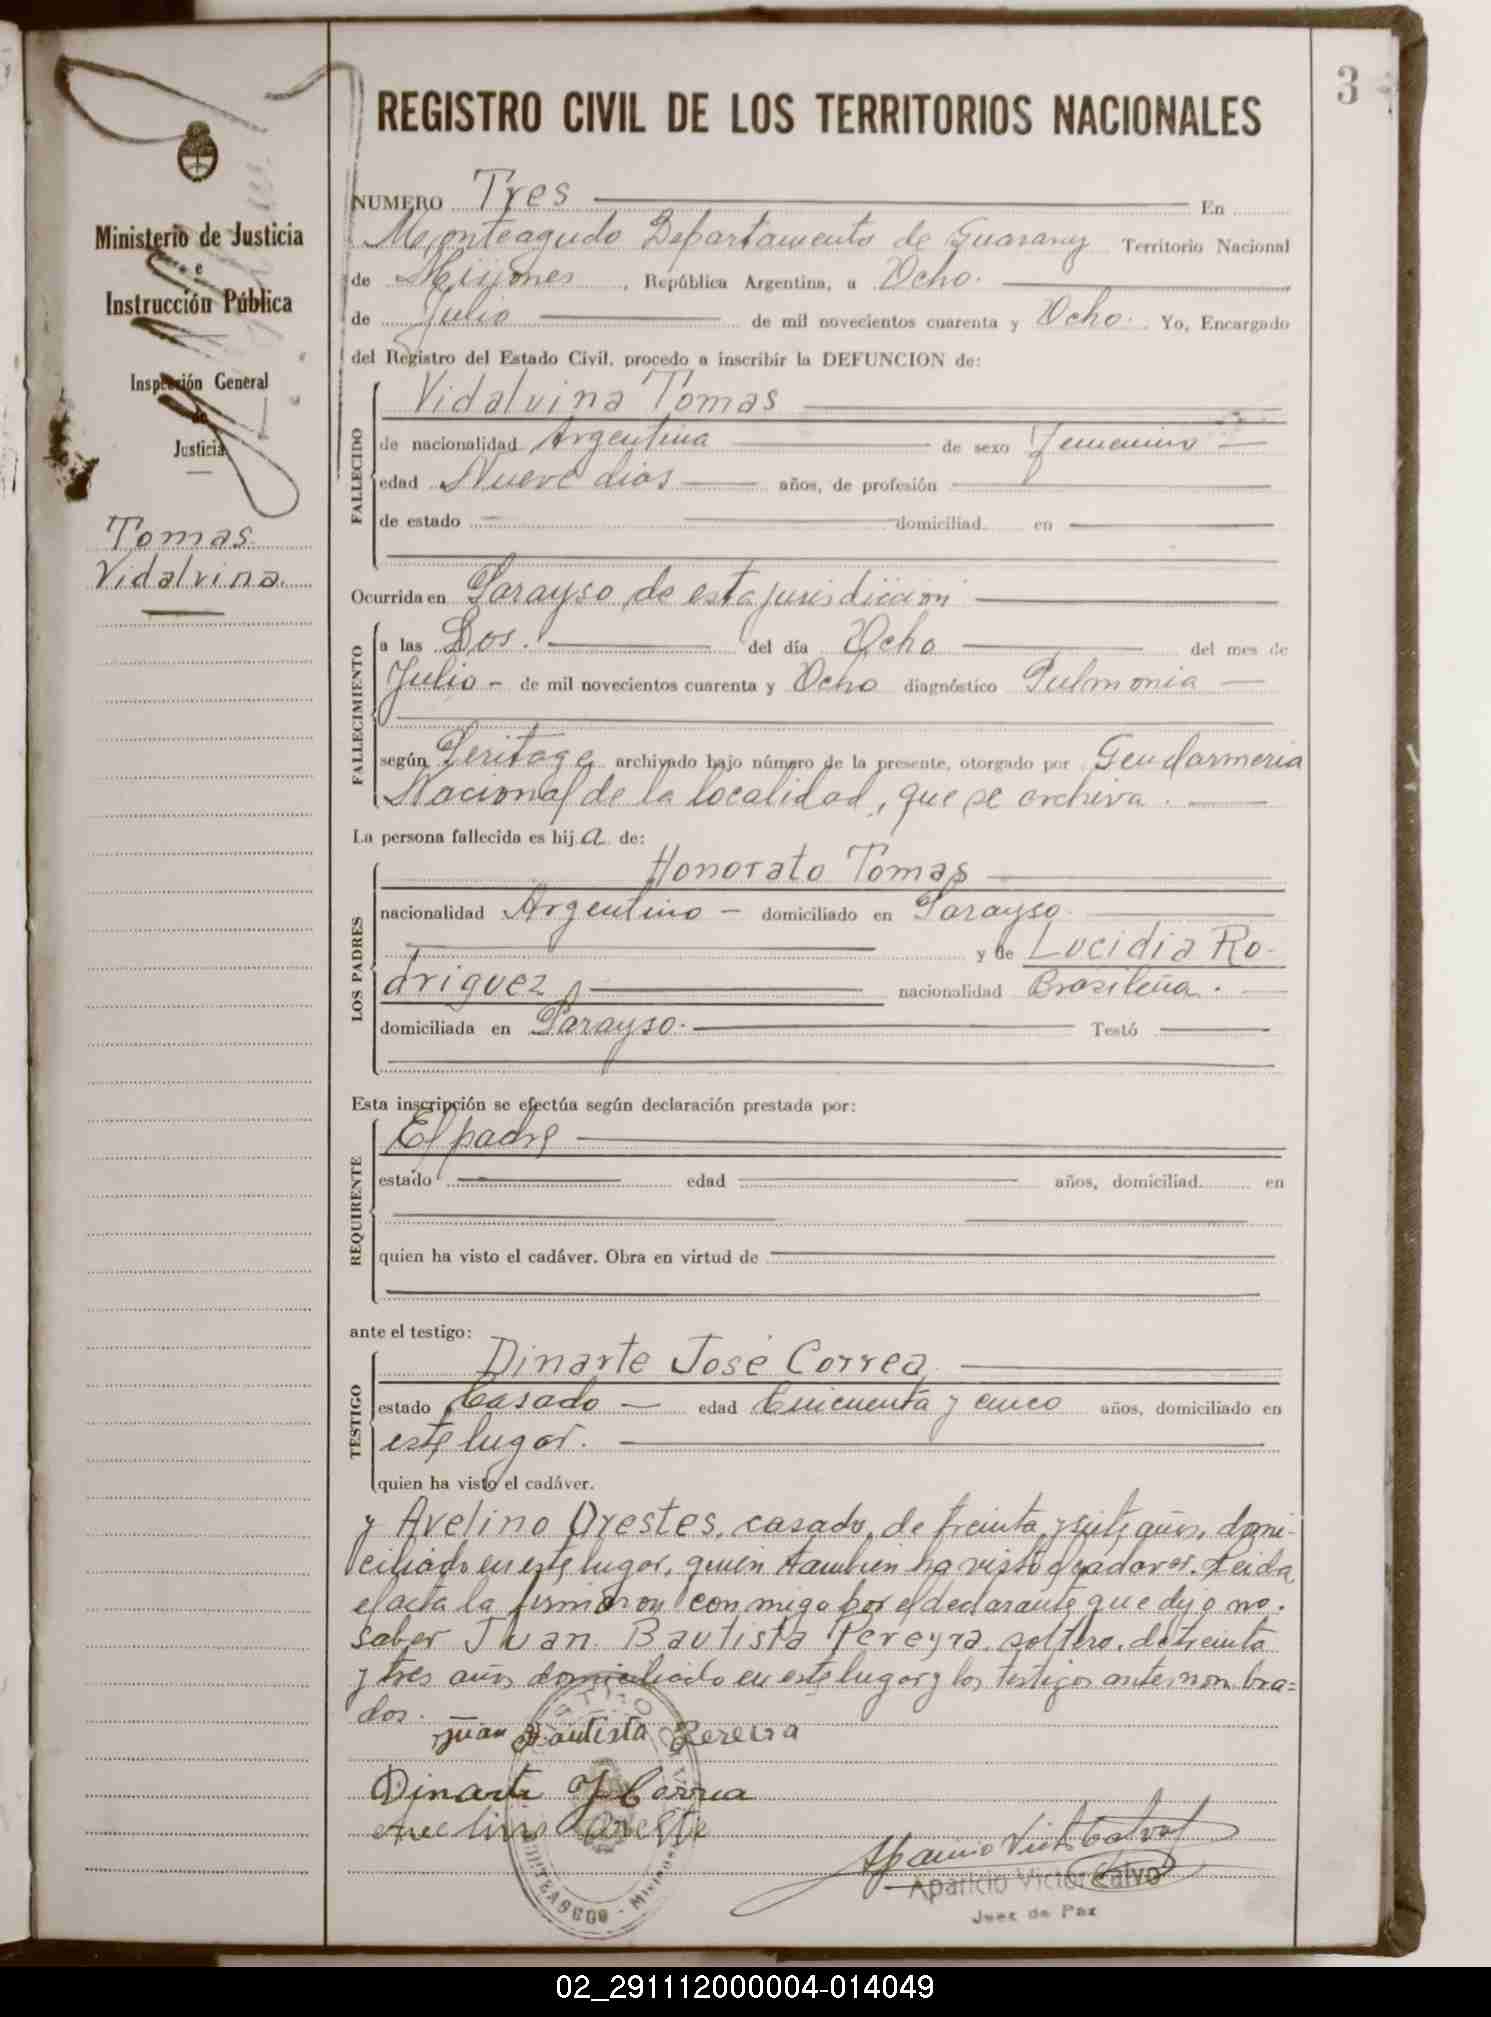 3
REGISTRO CIVIL DE LOS TERRITORIOS NACIONALES
Ministerio de Justicia
e
Instrucción Pública
Inspección General
de
Justicia
Tomas
Vidalvina
NUMERO Tres En
Monteagudo Departamento de Guarany Territorio Nacional
de Misiones, República Argentina, a Ocho.
de Julio de mil novecientos cuarenta y Ocho. Yo, Encargado
del Registro del Estado Civil, procedo a inscribir la DEFUNCION de:
FALLECIDO
Vidalvina Tomas
de nacionalidad Argentina de sexo femenino
edad Nueve dias años, de profesión
de estado domiciliad en
Ocurrida en Parayso de esta jurisdiccion
FALLECIMIENTO
a las Dos. del día Ocho del mes de
Julio - de mil novecientos cuarenta y Ocho diagnóstico Pulmonia
según Peritage archivado bajo número de la presente, otorgado por Gendarmeria
Nacional de la localidad, que se archiva.
La persona fallecida es hija de:
LOS PADRES
Honorato Tomas
nacionalidad Argentino - domiciliado en Parayso
y de Lucidia Ro-
driguez nacionalidad Brasileña.
domiciliada en Parayso. Testó
Esta inscripción se efectúa según declaración prestada por:
REQUIRENTE
El padre
estado edad años, domiciliad en
quien ha visto el cadáver. Obra en virtud de
ante el testigo:
TESTIGO
Dinarte José Correa
estado Casado - edad Cincuenta y cinco años, domiciliado en
este lugar.
quien ha visto el cadáver.
y Avelino Orestes, casado, de treinta y siete años, domi-
ciliado en este lugar, quien tambien ha visto el cadaver. Leida
el acta la firmaron conmigo por el declarante que dijo no
saber Juan Bautista Pereyra, soltero, de treinta
y tres años domiciliado en este lugar y los testigos antenombra=
dos.
Juan Bautista Pereira
Dinarte J Correa
Avelino Oreste
MONTEAGUDO - Misiones
Aparicio Victor Calvo
Aparicio Victor Calvo
Juez de Paz
02_291112000004-014049